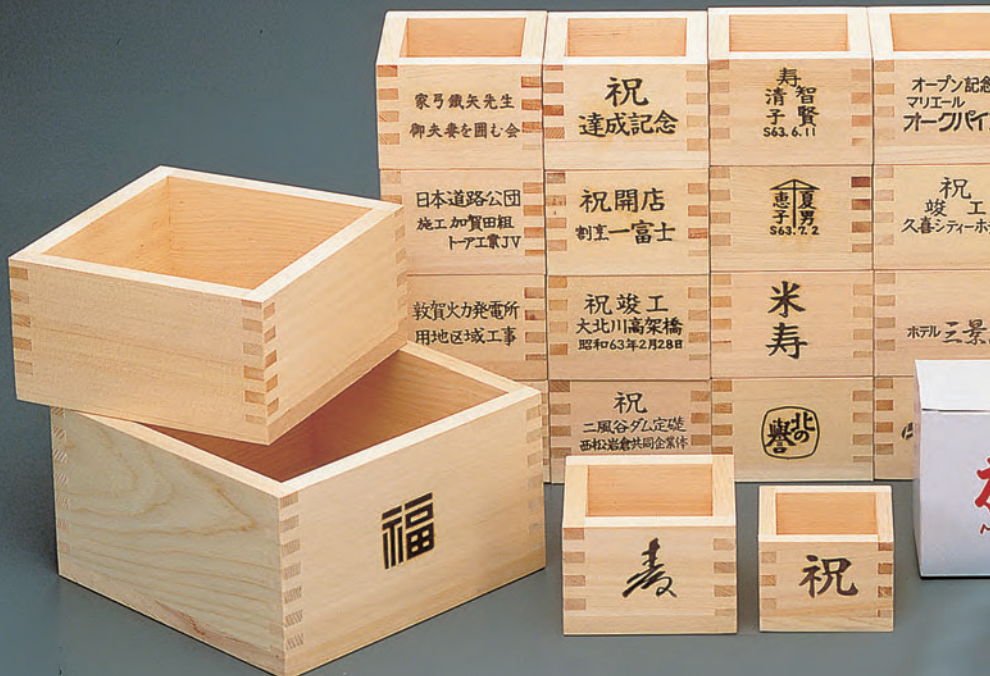 家弓鐵矢先生
御夫妻を囲む会
祝
達成記念
寿
清子 智賢
S63.6.11
オープン記念
マリエール
オークパイ
日本道路公団
施工 加賀田組
トーア工業JV
祝開店
割烹一富士
恵子 夏男
S63.7.2
祝
竣工
久喜シティーホテ
敦賀火力発電所
用地区域工事
祝竣工
大北川高架橋
昭和63年2月28日
米
寿
ホテル三景
祝
二風谷ダム定礎
西松岩倉共同企業体
北の
誉
福
寿
祝